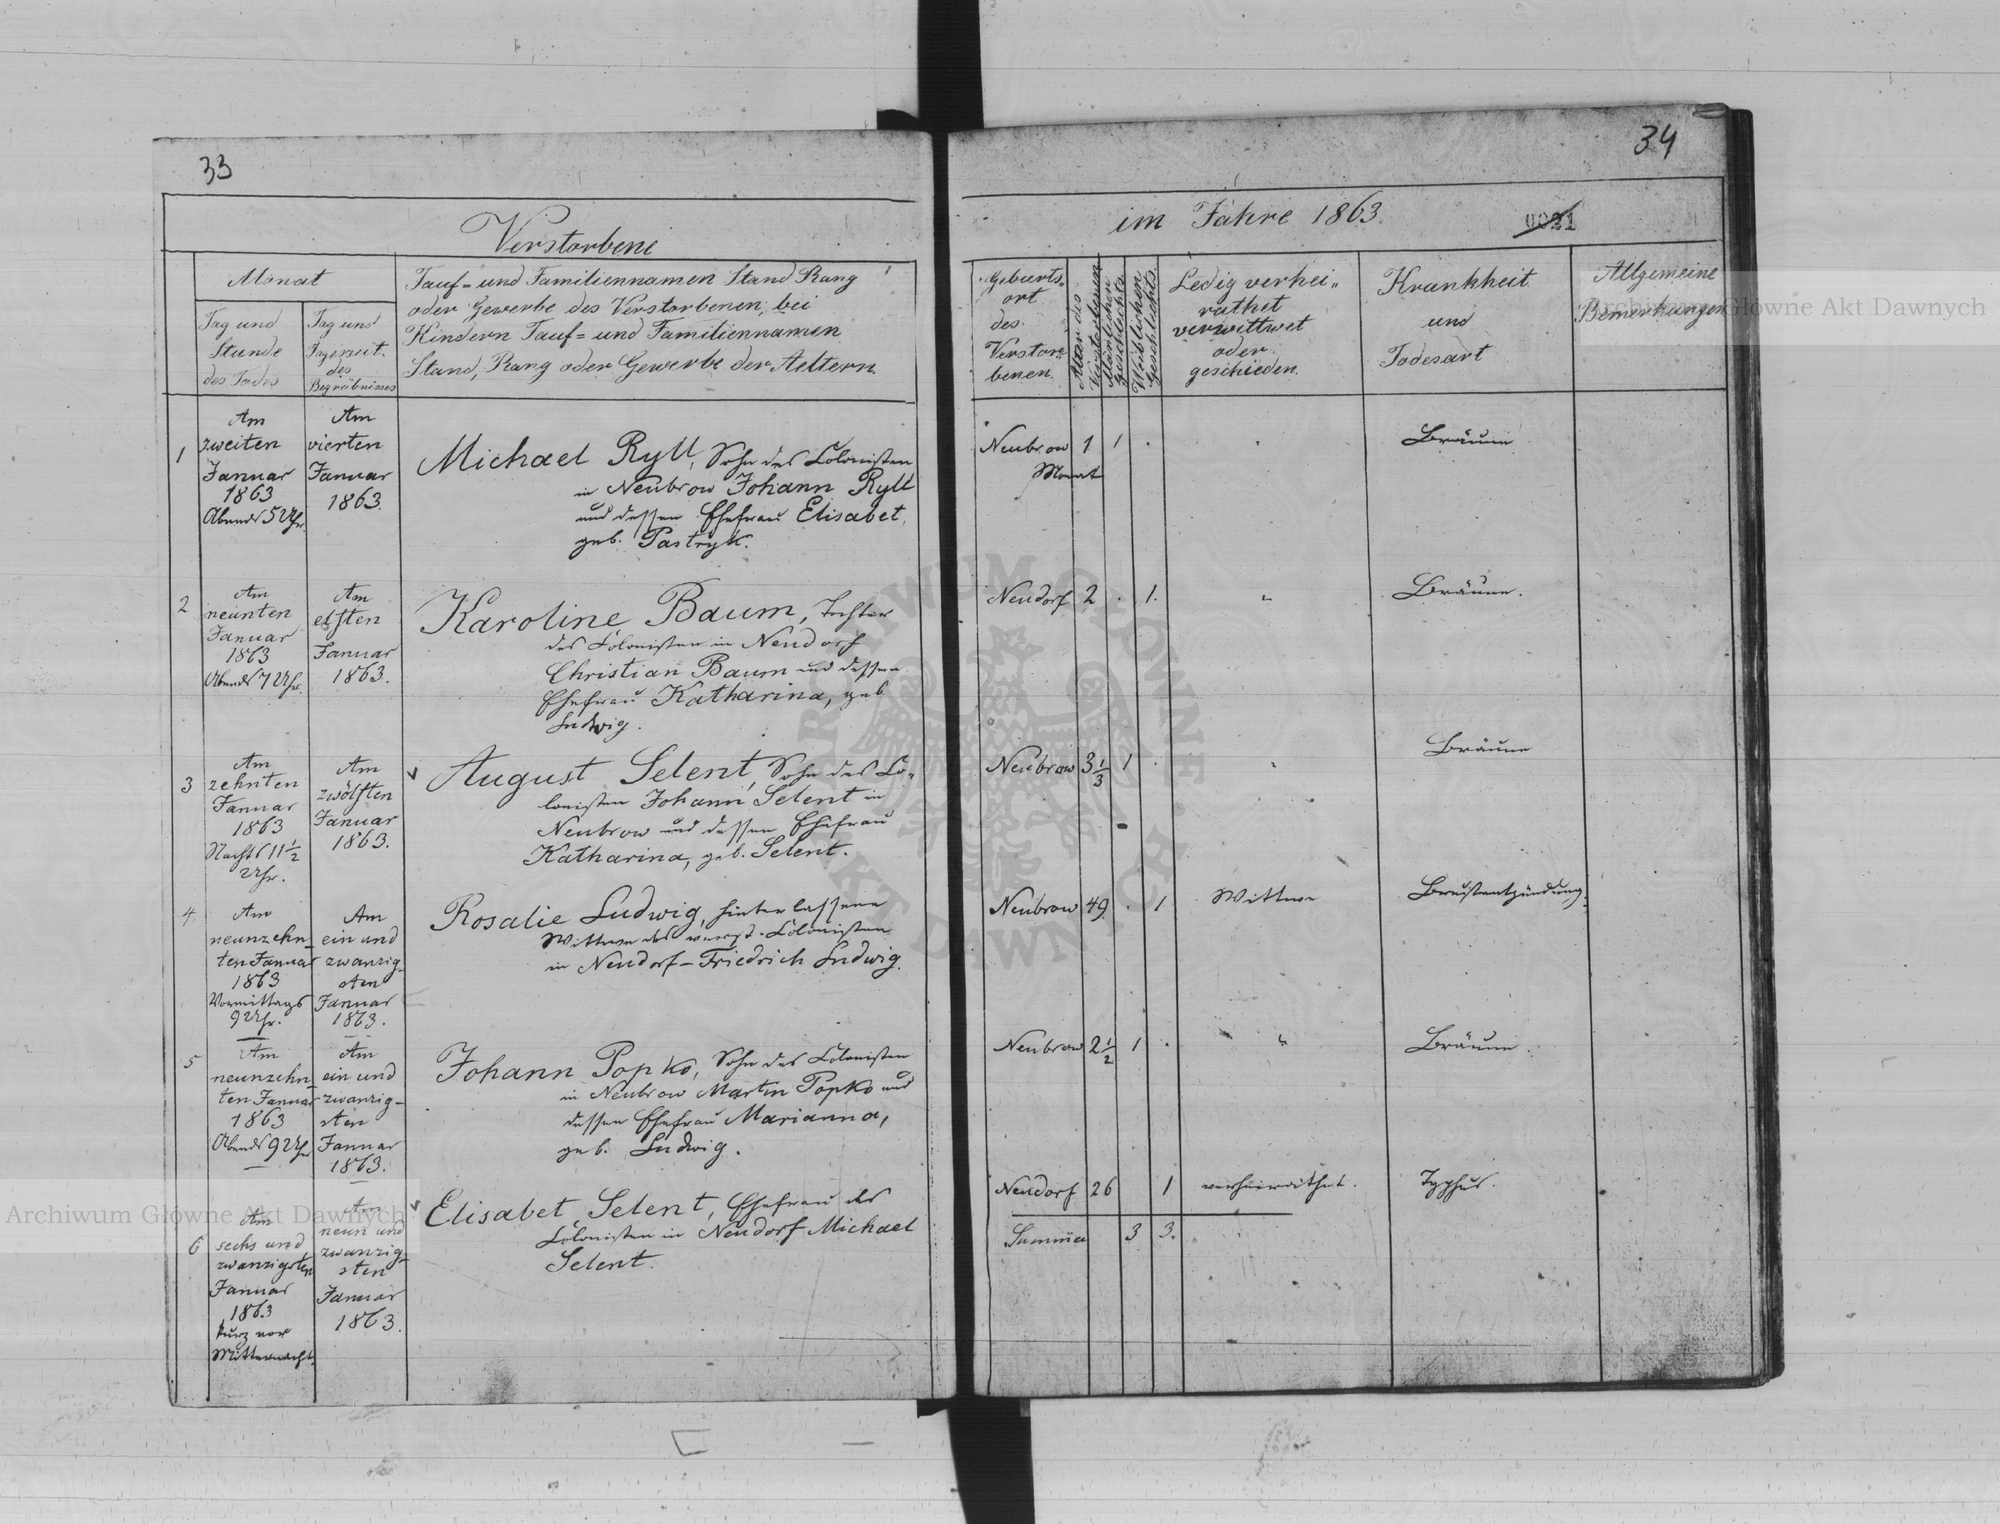 33
Verstorbene
Monat
Tag und
Stunde
des Todes
Tag und
Tageszeit
des
Begräbnisses
Tauf- und Familiennamen Stand Rang
oder Gewerbe des Verstorbenen, bei
Kindern Tauf- und Familiennamen
Stand, Rang oder Gewerbe der Aeltern.
1
Am
zweiten
Januar
1863
Abends 5 Uhr.
Am
vierten
Januar
1863.
Michael Ryll, Sohn des Colonisten
in Neubrow Johann Ryll
und dessen Ehefrau Elisabet,
geb. Pastryk.
2
Am
neunten
Januar
1863
Abends 7 Uhr.
Am
elften
Januar
1863.
Karoline Baum, Tochter
des Colonisten in Neudorf
Christian Baum und dessen
Ehefrau Katharina, geb.
Ludwig.
3
Am
zehnten
Januar
1863
Nachts 11 1/2
Uhr.
Am
zwölften
Januar
1863.
August Selent, Sohn des Co-
lonisten Johann Selent in
Neubrow und dessen Ehefrau
Katharina, geb. Selent.
4
Am
neunzehn-
ten Januar
1863
Vormittags
9 Uhr.
Am
ein und
zwanzig-
sten
Januar
1863.
Rosalie Ludwig, hinterlassene
Wittwe des verst. Colonisten
in Neudorf - Friedrich Ludwig.
5
Am
neunzehn-
ten Januar
1863
Abends 9 Uhr
Am
ein und
zwanzig-
sten
Januar
1863.
Johann Popko, Sohn des Colonisten
in Neubrow Martin Popko und
dessen Ehefrau Marianna,
geb. Ludwig.
6
Am
sechs und
zwanzigsten
Januar
1863
kurz vor
Mitternacht.
Am
neun und
zwanzig-
sten
Januar
1863.
Elisabet Selent, Ehefrau des
Colonisten in Neudorf Michael
Selent.
34
im Jahre 1863.
0021
Geburts-
ort
des
Verstor-
benen.
Alter des
Verstorbenen
Mänlichen
Geschlechts
Weiblichen
Geschlechts.
Ledig verhei-
rathet
verwittwet
oder
geschieden.
Krankheit
und
Todesart
Allgemeine
Bemerkungen
Neubrow 1 1 Bräune
Monat
Neudorf 2 . 1. " Bräune.
Neubrow 3 1/3 1 . " Bräune
Neubrow 49. . 1 Wittwe Brustentzündung.
Neubrow 2 1/2 1 . " Bräune.
Neudorf 26 1 verheirathet. Typhus.
Summa 3 3.
Archiwum Główne Akt Dawnych
Archiwum Główne Akt Dawnych
ARCHIWUM GŁÓWNE AKT DAWNYCH